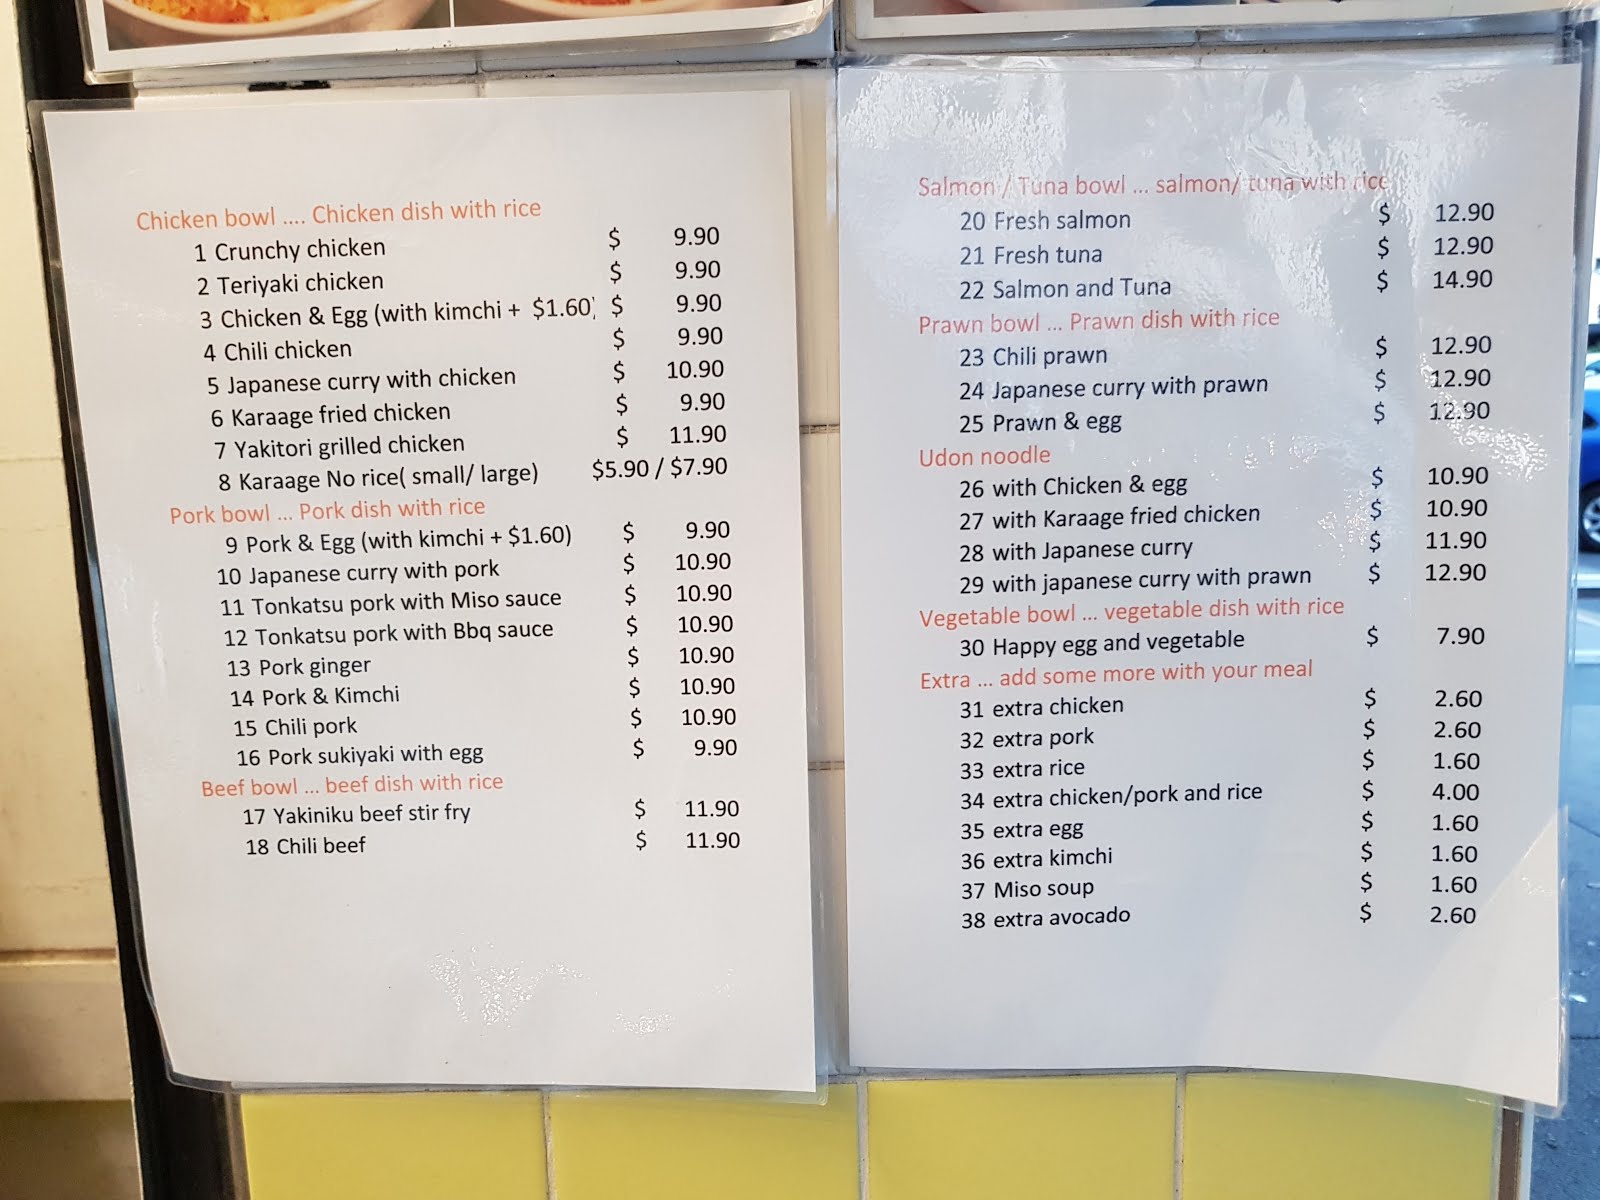 Chicken bowl .... Chicken dish with rice
1 Crunchy chicken $ 9.90
2 Teriyaki chicken $ 9.90
3 Chicken & Egg (with kimchi + $1.60) $ 9.90
4 Chili chicken $ 9.90
5 Japanese curry with chicken $ 10.90
6 Karaage fried chicken $ 9.90
7 Yakitori grilled chicken $ 11.90
8 Karaage No rice( small/ large) $5.90 / $7.90
Pork bowl ... Pork dish with rice
9 Pork & Egg (with kimchi + $1.60) $ 9.90
10 Japanese curry with pork $ 10.90
11 Tonkatsu pork with Miso sauce $ 10.90
12 Tonkatsu pork with Bbq sauce $ 10.90
13 Pork ginger $ 10.90
14 Pork & Kimchi $ 10.90
15 Chili pork $ 10.90
16 Pork sukiyaki with egg $ 9.90
Beef bowl ... beef dish with rice
17 Yakiniku beef stir fry $ 11.90
18 Chili beef $ 11.90
Salmon / Tuna bowl ... salmon/ tuna with rice
20 Fresh salmon $ 12.90
21 Fresh tuna $ 12.90
22 Salmon and Tuna $ 14.90
Prawn bowl ... Prawn dish with rice
23 Chili prawn $ 12.90
24 Japanese curry with prawn $ 12.90
25 Prawn & egg $ 12.90
Udon noodle
26 with Chicken & egg $ 10.90
27 with Karaage fried chicken $ 10.90
28 with Japanese curry $ 11.90
29 with japanese curry with prawn $ 12.90
Vegetable bowl ... vegetable dish with rice
30 Happy egg and vegetable $ 7.90
Extra ... add some more with your meal
31 extra chicken $ 2.60
32 extra pork $ 2.60
33 extra rice $ 1.60
34 extra chicken/pork and rice $ 4.00
35 extra egg $ 1.60
36 extra kimchi $ 1.60
37 Miso soup $ 1.60
38 extra avocado $ 2.60